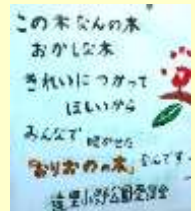 この木なんの木
おかしな木
きれいにつかって
ほしいから
みんなで 咲かせた
"おりおのの木" なんです
遠里小野公園愛護会